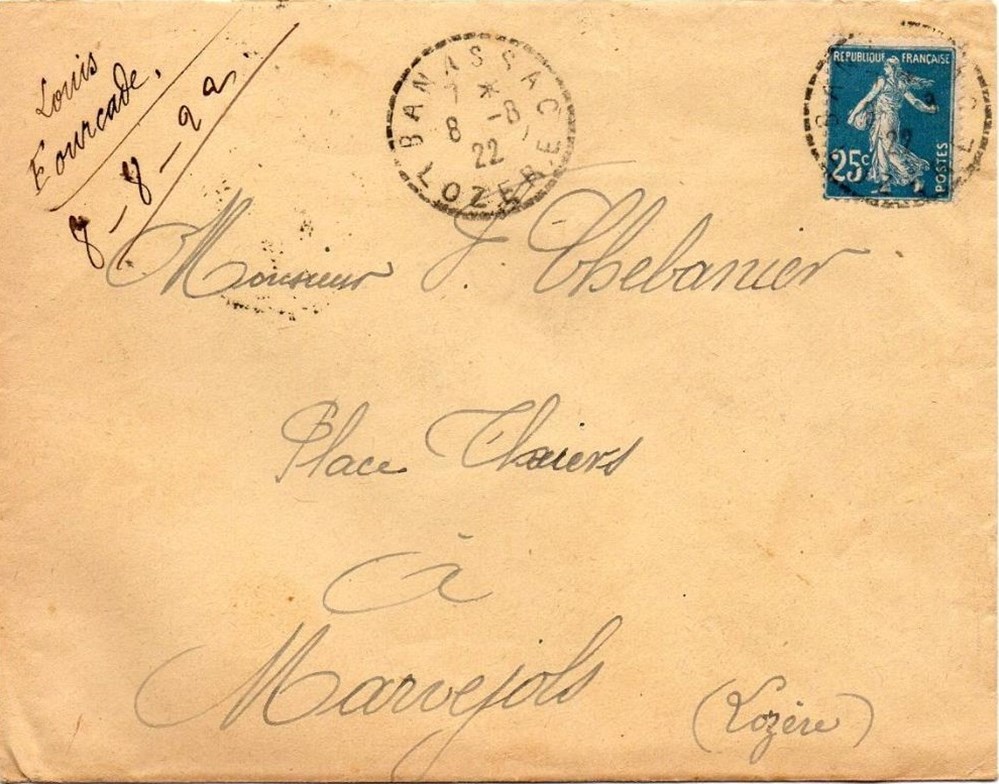 Louis
Fourcade.
8-8-22.
BANASSAC
*
8 -8
22
LOZERE
REPUBLIQUE FRANÇAISE
25c
POSTES
22
Monsieur J. Thebanier
Place Thiers
à
Marvejols
(Lozère)